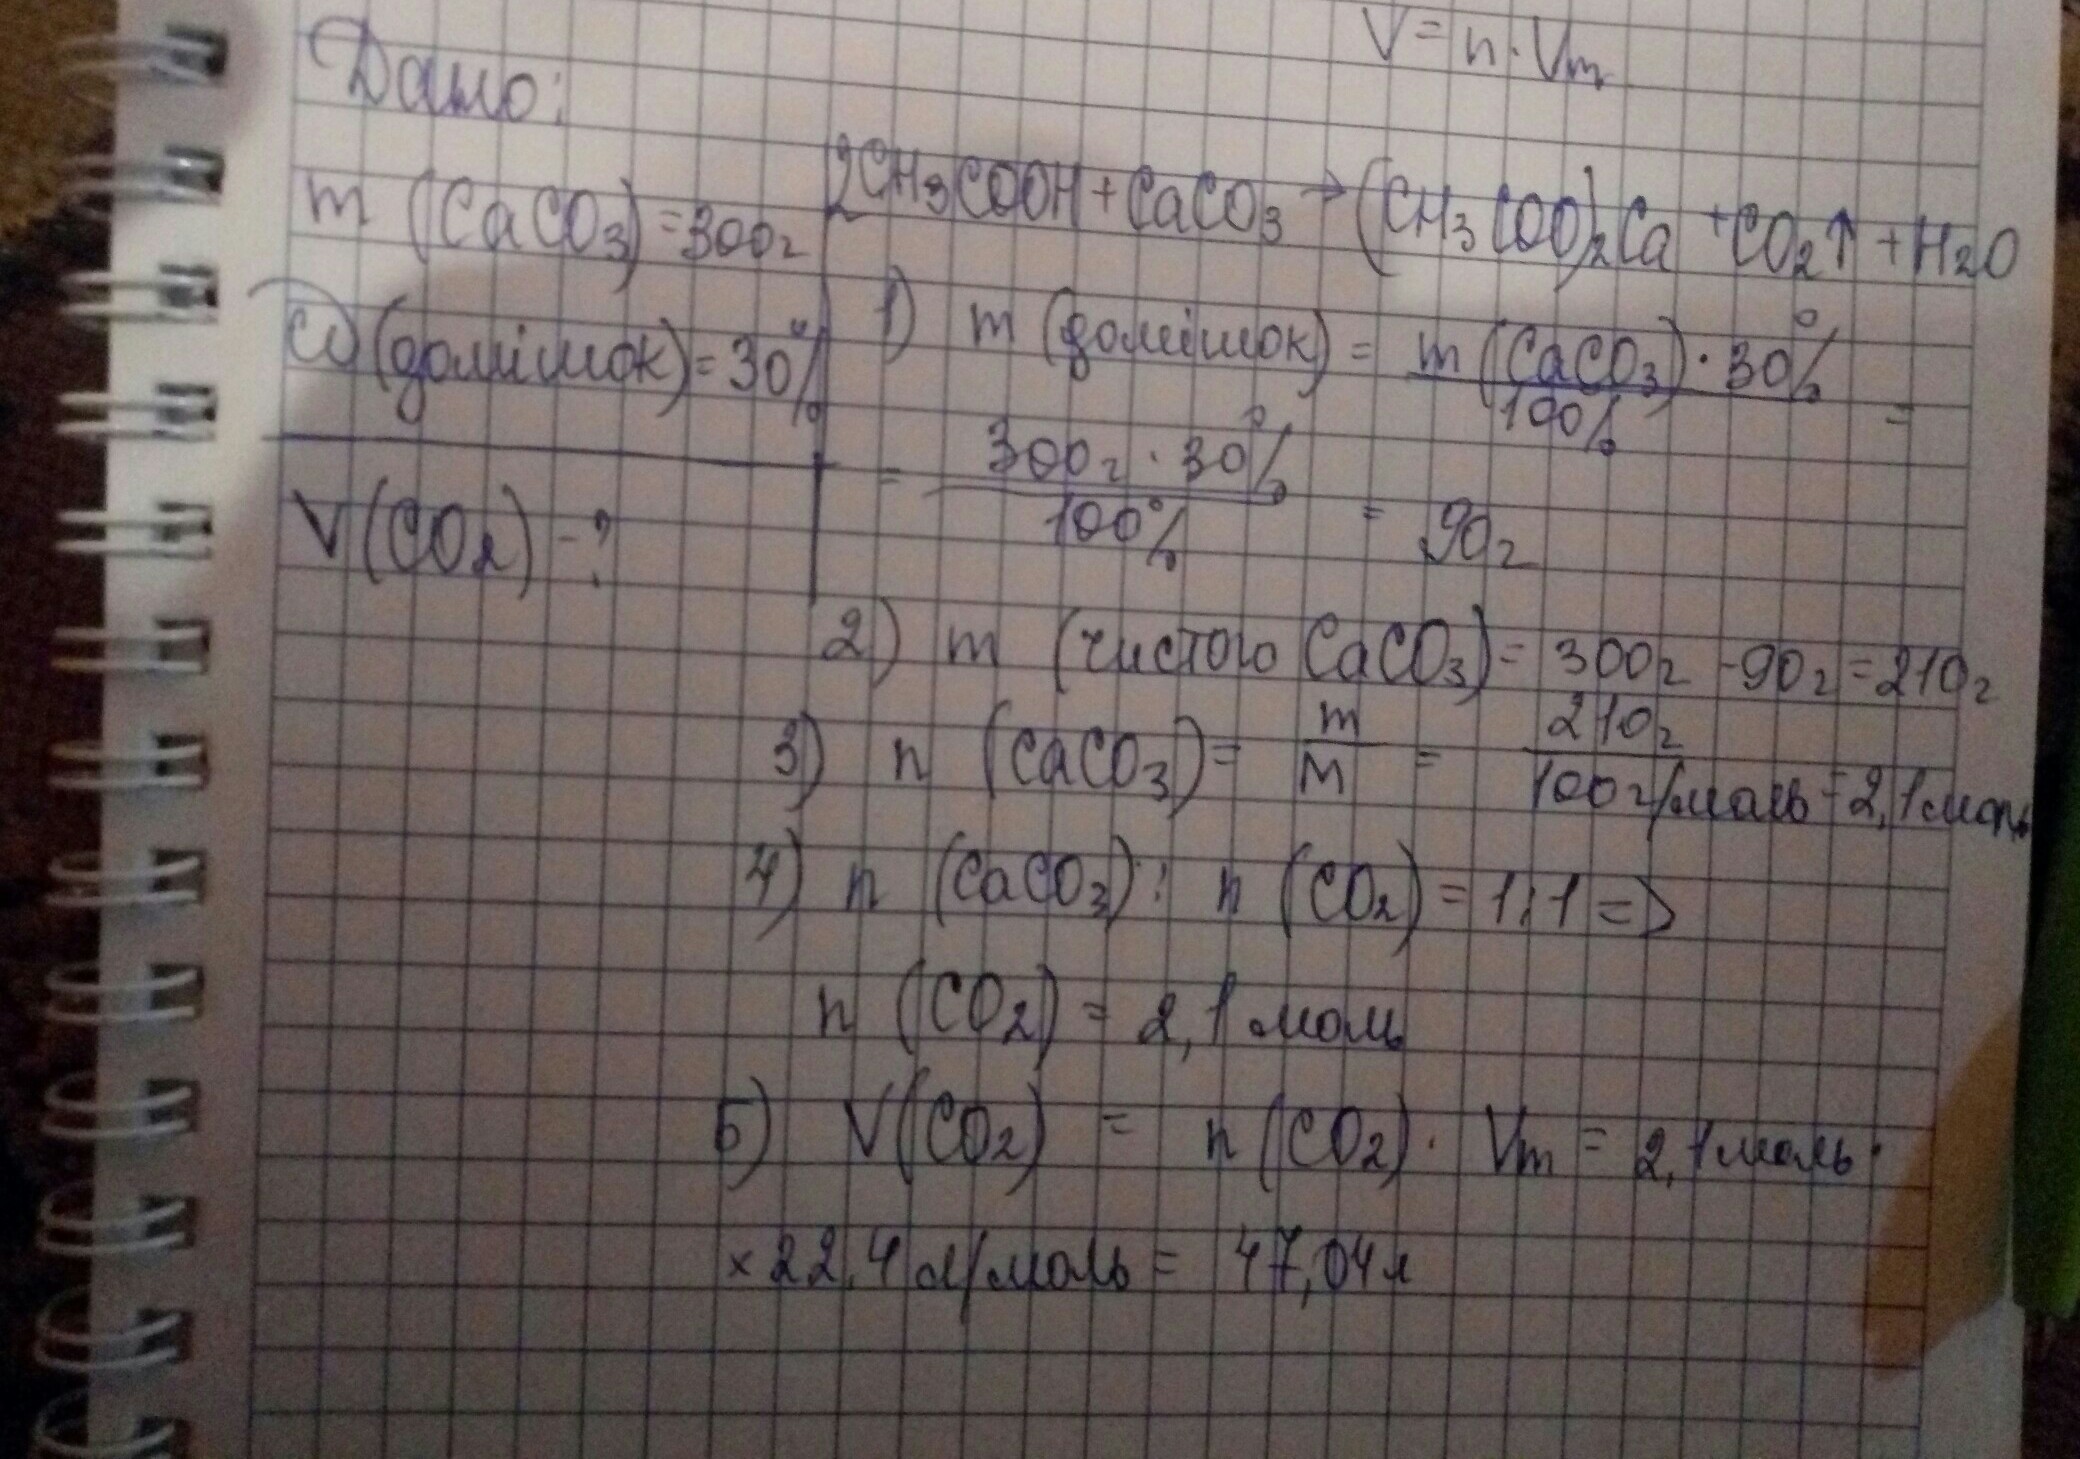 V = n · Vm
Дано:
m (CaCO3) = 300г
ω (домішок) = 30%
V(CO2) - ?
2CH3COOH + CaCO3 → (CH3COO)2Ca + CO2↑ + H2O
1) m (домішок) = m (CaCO3) · 30% / 100% =
= 300г · 30% / 100% = 90г
2) m (чистого CaCO3) = 300г - 90г = 210г
3) n (CaCO3) = m / M = 210г / 100г/моль = 2,1моль
4) n (CaCO3) : n (CO2) = 1:1 =>
n (CO2) = 2,1 моль
5) V(CO2) = n (CO2) · Vm = 2,1моль ·
× 22,4 л/моль = 47,04л